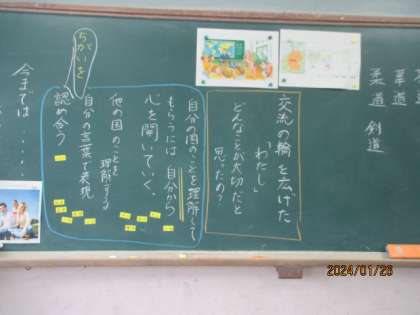 柔道
柔道
柔道 剣道
交流の輪を広げた
「わたし」
どんなことが大切だと
思ったの?
自分の国のことを理解して
もらうには自分から
心を開いていく。
他の国のことを
理解する
自分の言葉で表現
認め合う
ちがいを
今までは・・・・
2024/01/26